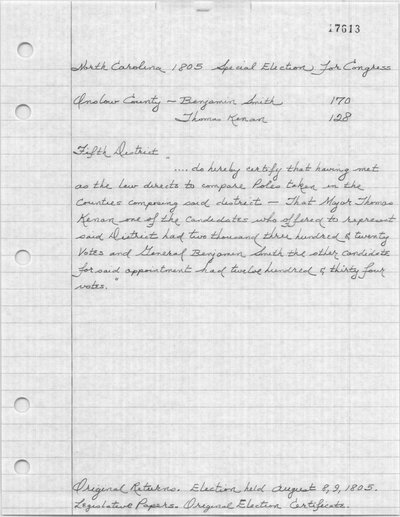 17613
North Carolina 1805 Special Election, for Congress
Onslow County — Benjamin Smith 170
Thomas Kenan 128
Fifth District
"....do hereby certify that having met
as the law directs to compare Poles taken in the
Counties composing said district — That Major Thomas
Kenan one of the Candedates who offered to represent
said District had two thousand three hundred & twenty
Votes and General Benjamin Smith the other Candidate
for said appointment had twelve hundred & thirty four
votes."
Original Returns. Election held August 8, 9, 1805.
Legislative Papers. Original Election Certificate.